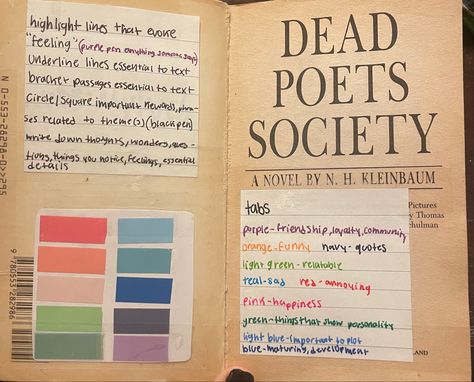 highlight lines that evoke
"feeling" (purple pen anything someone says)
Underline lines essential to text
bracket passages essential to text
Circle/Square important keywords, phra-
ses related to theme(s) (black pen)
write down thoughts, wonders, ques-
tions, things you notice, feelings, essential
details
9 780553 282986
DEAD
POETS
SOCIETY
A NOVEL BY N. H. KLEINBAUM
Pictures
y Thomas
chulman
tabs
purple-friendship, loyalty, community
orange-funny navy-quotes
light green-relatable
teal-sad red-annoying
pink-happiness
green-things that show personality
light blue-important to plot
blue-maturing, development
LAND